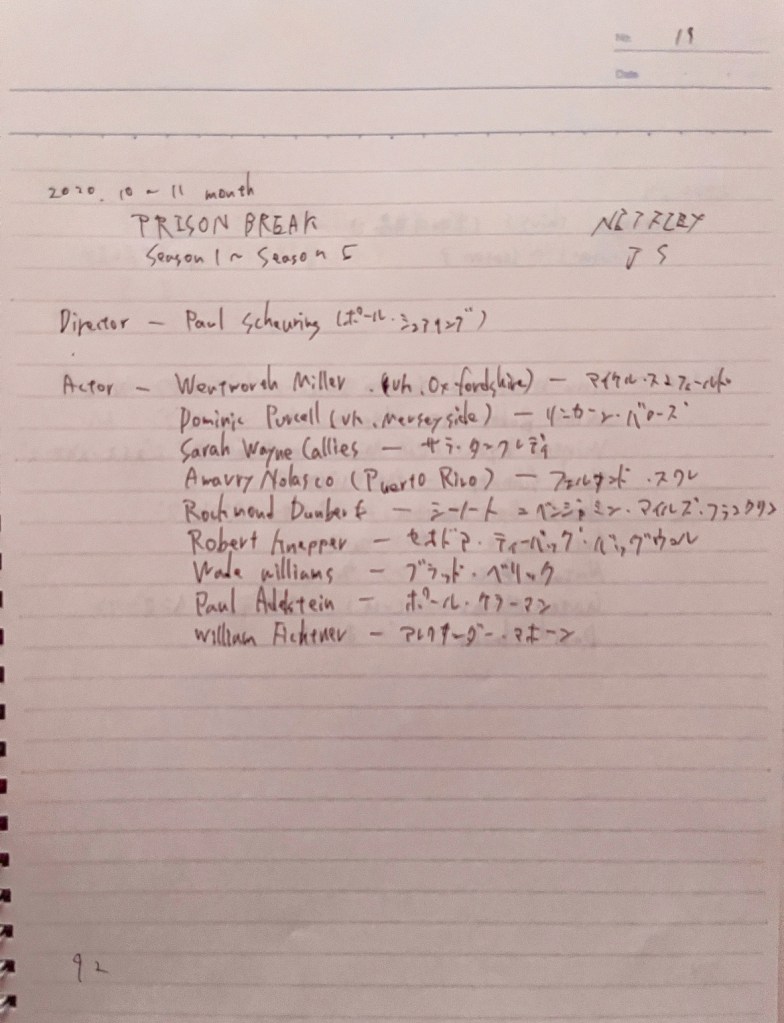 No. 19
Date
2020. 10 ~ 11 month
PRISON BREAK
Season 1 ~ Season 5
J S
Director - Paul Scheuring (ポール・シュアリング)
Actor - Wentworth Miller . (uk. Oxfordshire) - マイケル・スコフィールド
Dominic Purcell (uk. Merseyside) - リンカーン・バローズ
Sarah Wayne Callies - サラ・タンクレディ
Amaury Nolasco (Puerto Rico) - フェルナンド・スクレ
シーノート ベンジャミン・マイルズ・フランクリン
Robert Knepper - セオドア・ティーバッグ・バッグウェル
Wade williams - ブラッド・ベリック
Paul Adelstein - ポール・ケラーマン
william Fichtner - アレクサンダー・マホーン
92